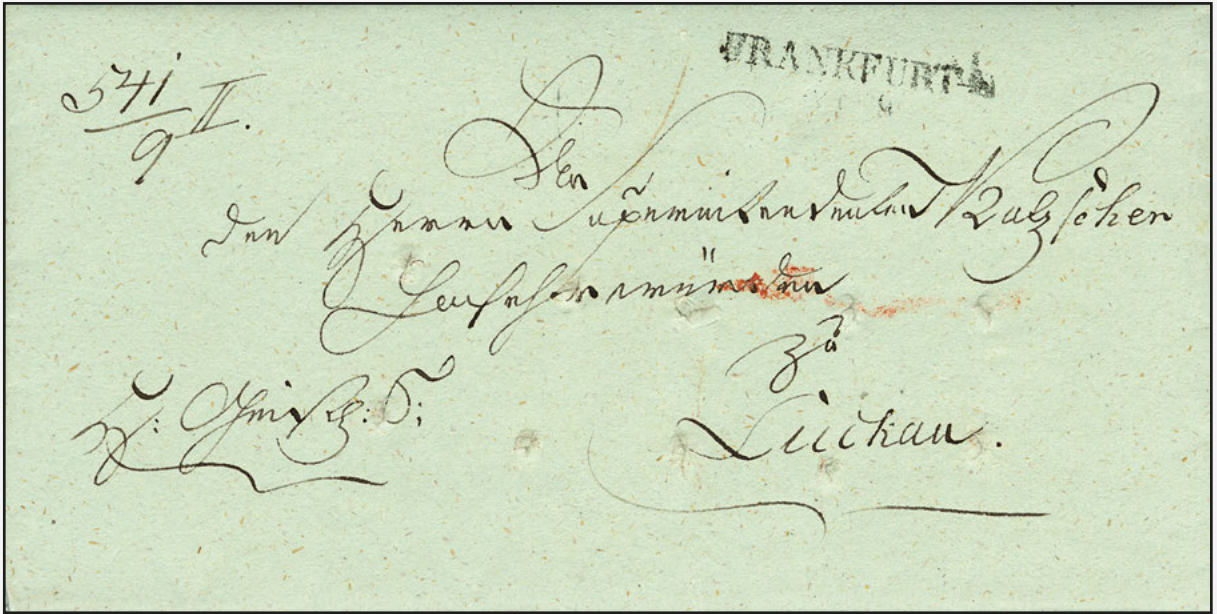 FRANKFURT
541/9 II.
An
den Herrn Superintendenten
Hochehrwürden
Zu
Luckau.
H: